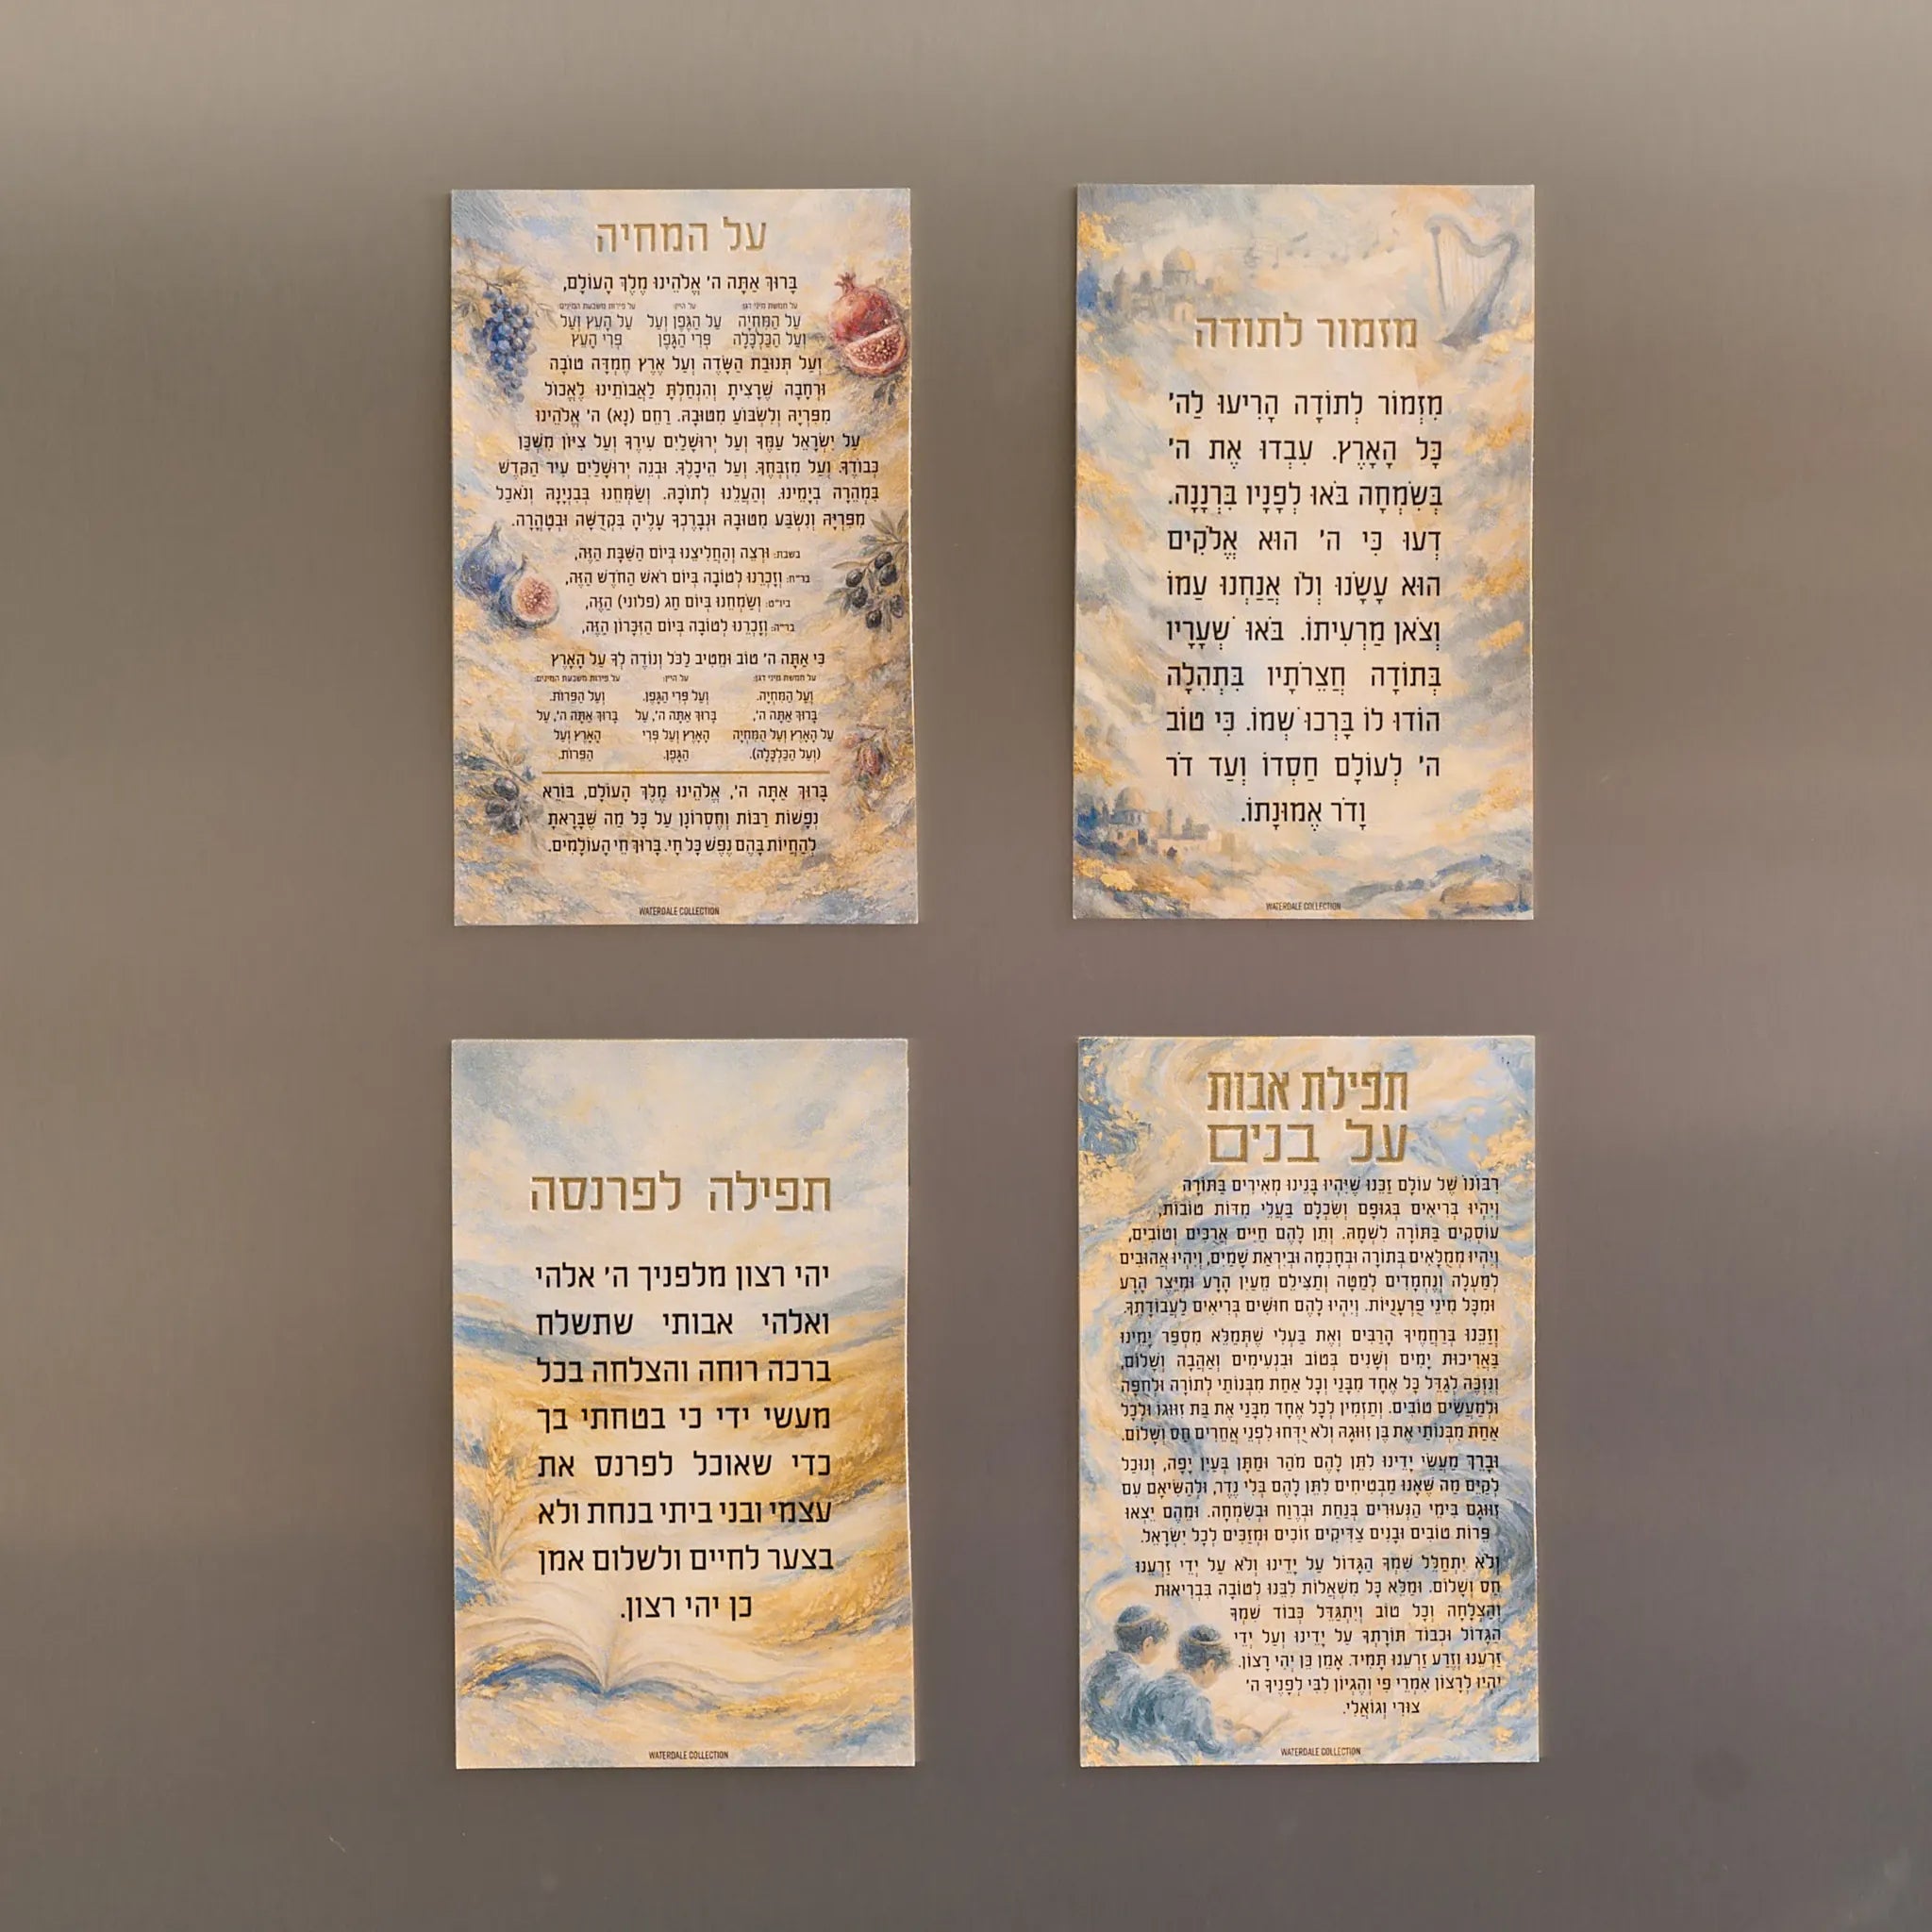 על המחיה
בָּרוּךְ אַתָּה ה' אֱלֹהֵינוּ מֶלֶךְ הָעוֹלָם,
על חמשת מיני דגן: על היין: על פירות משבעת המינים:
עַל הַמִּחְיָה עַל הַגֶּפֶן וְעַל עַל הָעֵץ וְעַל
וְעַל הַכַּלְכָּלָה פְּרִי הַגֶּפֶן פְּרִי הָעֵץ
וְעַל תְּנוּבַת הַשָּׂדֶה וְעַל אֶרֶץ חֶמְדָּה טוֹבָה
וּרְחָבָה שֶׁרָצִיתָ וְהִנְחַלְתָּ לַאֲבוֹתֵינוּ לֶאֱכוֹל
מִפִּרְיָהּ וְלִשְׂבּוֹעַ מִטּוּבָהּ. רַחֵם (נָא) ה' אֱלֹהֵינוּ
עַל יִשְׂרָאֵל עַמֶּךָ וְעַל יְרוּשָׁלַיִם עִירֶךָ וְעַל צִיּוֹן מִשְׁכַּן
כְּבוֹדֶךָ. וְעַל מִזְבְּחֶךָ. וְעַל הֵיכָלֶךָ. וּבְנֵה יְרוּשָׁלַיִם עִיר הַקֹּדֶשׁ
בִּמְהֵרָה בְיָמֵינוּ. וְהַעֲלֵנוּ לְתוֹכָהּ. וְשַׂמְּחֵנוּ בְּבִנְיָנָהּ וְנֹאכַל
מִפִּרְיָהּ וְנִשְׂבַּע מִטּוּבָהּ וּנְבָרֶכְךָ עָלֶיהָ בִּקְדֻשָּׁה וּבְטָהֳרָה.
בשבת: וּרְצֵה וְהַחֲלִיצֵנוּ בְּיוֹם הַשַּׁבָּת הַזֶּה,
בר"ח: וְזָכְרֵנוּ לְטוֹבָה בְּיוֹם רֹאשׁ הַחֹדֶשׁ הַזֶּה,
ביו"ט: וְשַׂמְּחֵנוּ בְּיוֹם חַג (פלוני) הַזֶּה,
בר"ה: וְזָכְרֵנוּ לְטוֹבָה בְּיוֹם הַזִּכָּרוֹן הַזֶּה,
כִּי אַתָּה ה' טוֹב וּמֵטִיב לַכֹּל וְנוֹדֶה לְךָ עַל הָאָרֶץ
על חמשת מיני דגן: על היין: על פירות משבעת המינים:
וְעַל הַמִּחְיָה. וְעַל פְּרִי הַגֶּפֶן. וְעַל הַפֵּרוֹת.
בָּרוּךְ אַתָּה ה', בָּרוּךְ אַתָּה ה', עַל בָּרוּךְ אַתָּה ה', עַל
עַל הָאָרֶץ וְעַל הַמִּחְיָה הָאָרֶץ וְעַל פְּרִי הָאָרֶץ וְעַל
(וְעַל הַכַּלְכָּלָה). הַגֶּפֶן. הַפֵּרוֹת.
בָּרוּךְ אַתָּה ה', אֱלֹהֵינוּ מֶלֶךְ הָעוֹלָם, בּוֹרֵא
נְפָשׁוֹת רַבּוֹת וְחֶסְרוֹנָן עַל כָּל מַה שֶּׁבָּרָאתָ
לְהַחֲיוֹת בָּהֶם נֶפֶשׁ כָּל חָי. בָּרוּךְ חֵי הָעוֹלָמִים.
WATERDALE COLLECTION
מזמור לתודה
מִזְמוֹר לְתוֹדָה הָרִיעוּ לַה'
כָּל הָאָרֶץ. עִבְדוּ אֶת ה'
בְּשִׂמְחָה בֹּאוּ לְפָנָיו בִּרְנָנָה.
דְעוּ כִּי ה' הוּא אֱלֹקִים
הוּא עָשָׂנוּ וְלוֹ אֲנַחְנוּ עַמּוֹ
וְצֹאן מַרְעִיתוֹ. בֹּאוּ שְׁעָרָיו
בְּתוֹדָה חֲצֵרֹתָיו בִּתְהִלָּה
הוֹדוּ לוֹ בָּרְכוּ שְׁמוֹ. כִּי טוֹב
ה' לְעוֹלָם חַסְדּוֹ וְעַד דֹּר
וָדֹר אֱמוּנָתוֹ.
WATERDALE COLLECTION
תפילה לפרנסה
יהי רצון מלפניך ה' אלהי
ואלהי אבותי שתשלח
ברכה רוחה והצלחה בכל
מעשי ידי כי בטחתי בך
כדי שאוכל לפרנס את
עצמי ובני ביתי בנחת ולא
בצער לחיים ולשלום אמן
כן יהי רצון.
WATERDALE COLLECTION
תפילת אבות
על בנים
רִבּוֹנוֹ שֶׁל עוֹלָם זַכֵּנוּ שֶׁיִּהְיוּ בָּנֵינוּ מְאִירִים בַּתּוֹרָה
וְיִהְיוּ בְּרִיאִים בְּגוּפָם וְשִׂכְלָם בַּעֲלֵי מִדּוֹת טוֹבוֹת,
עוֹסְקִים בַּתּוֹרָה לִשְׁמָהּ. וְתֵן לָהֶם חַיִּים אֲרֻכִּים וְטוֹבִים,
וְיִהְיוּ מְמֻלָּאִים בְּתוֹרָה וּבְחָכְמָה וּבְיִרְאַת שָׁמַיִם, וְיִהְיוּ אֲהוּבִים
לְמַעְלָה וְנֶחְמָדִים לְמַטָּה וְתַצִּילֵם מֵעַיִן הָרָע וּמִיֵּצֶר הָרָע
וּמִכָּל מִינֵי פֻּרְעָנֻיּוֹת. וְיִהְיוּ לָהֶם חוּשִׁים בְּרִיאִים לַעֲבוֹדָתֶךָ.
וְזַכֵּנוּ בְּרַחֲמֶיךָ הָרַבִּים וְאֶת בַּעְלִי שֶׁתְּמַלֵּא מִסְפַּר יָמֵינוּ
בַּאֲרִיכוּת יָמִים וְשָׁנִים בְּטוֹב וּבִנְעִימִים וְאַהֲבָה וְשָׁלוֹם,
וְנִזְכֶּה לְגַדֵּל כָּל אֶחָד מִבָּנַי וְכָל אַחַת מִבְּנוֹתַי לְתוֹרָה וּלְחֻפָּה
וּלְמַעֲשִׂים טוֹבִים. וְתַזְמִין לְכָל אֶחָד מִבָּנַי אֶת בַּת זוּגוֹ וּלְכָל
אַחַת מִבְּנוֹתַי אֶת בֶּן זִוּוּגָהּ וְלֹא יִדָּחוּ לִפְנֵי אֲחֵרִים חַס וְשָׁלוֹם.
וּבָרֵךְ מַעֲשֵׂי יָדֵינוּ לִתֵּן לָהֶם מֹהַר וּמַתָּן בְּעַיִן יָפָה, וְנוּכַל
לְקַיֵּם מַה שֶּׁאָנוּ מַבְטִיחִים לִתֵּן לָהֶם בְּלִי נֶדֶר, וּלְהַשִּׂיאָם עִם
זִוּוּגָם בִּימֵי הַנְּעוּרִים בְּנַחַת וּבְרֶוַח וּבְשִׂמְחָה. וּמֵהֶם יֵצְאוּ
פֵּרוֹת טוֹבִים וּבָנִים צַדִּיקִים זוֹכִים וּמְזַכִּים לְכָל יִשְׂרָאֵל.
וְלֹא יִתְחַלֵּל שִׁמְךָ הַגָּדוֹל עַל יָדֵינוּ וְלֹא עַל יְדֵי זַרְעֵנוּ
חַס וְשָׁלוֹם. וּמַלֵּא כָּל מִשְׁאֲלוֹת לִבֵּנוּ לְטוֹבָה בִּבְרִיאוּת
וְהַצְלָחָה וְכָל טוֹב וְיִתְגַּדֵּל כְּבוֹד שִׁמְךָ
הַגָּדוֹל וּכְבוֹד תּוֹרָתְךָ עַל יָדֵינוּ וְעַל יְדֵי
זַרְעֵנוּ וְזֶרַע זַרְעֵנוּ תָּמִיד. אָמֵן כֵּן יְהִי רָצוֹן.
יִהְיוּ לְרָצוֹן אִמְרֵי פִי וְהֶגְיוֹן לִבִּי לְפָנֶיךָ ה'
צוּרִי וְגוֹאֲלִי.
WATERDALE COLLECTION